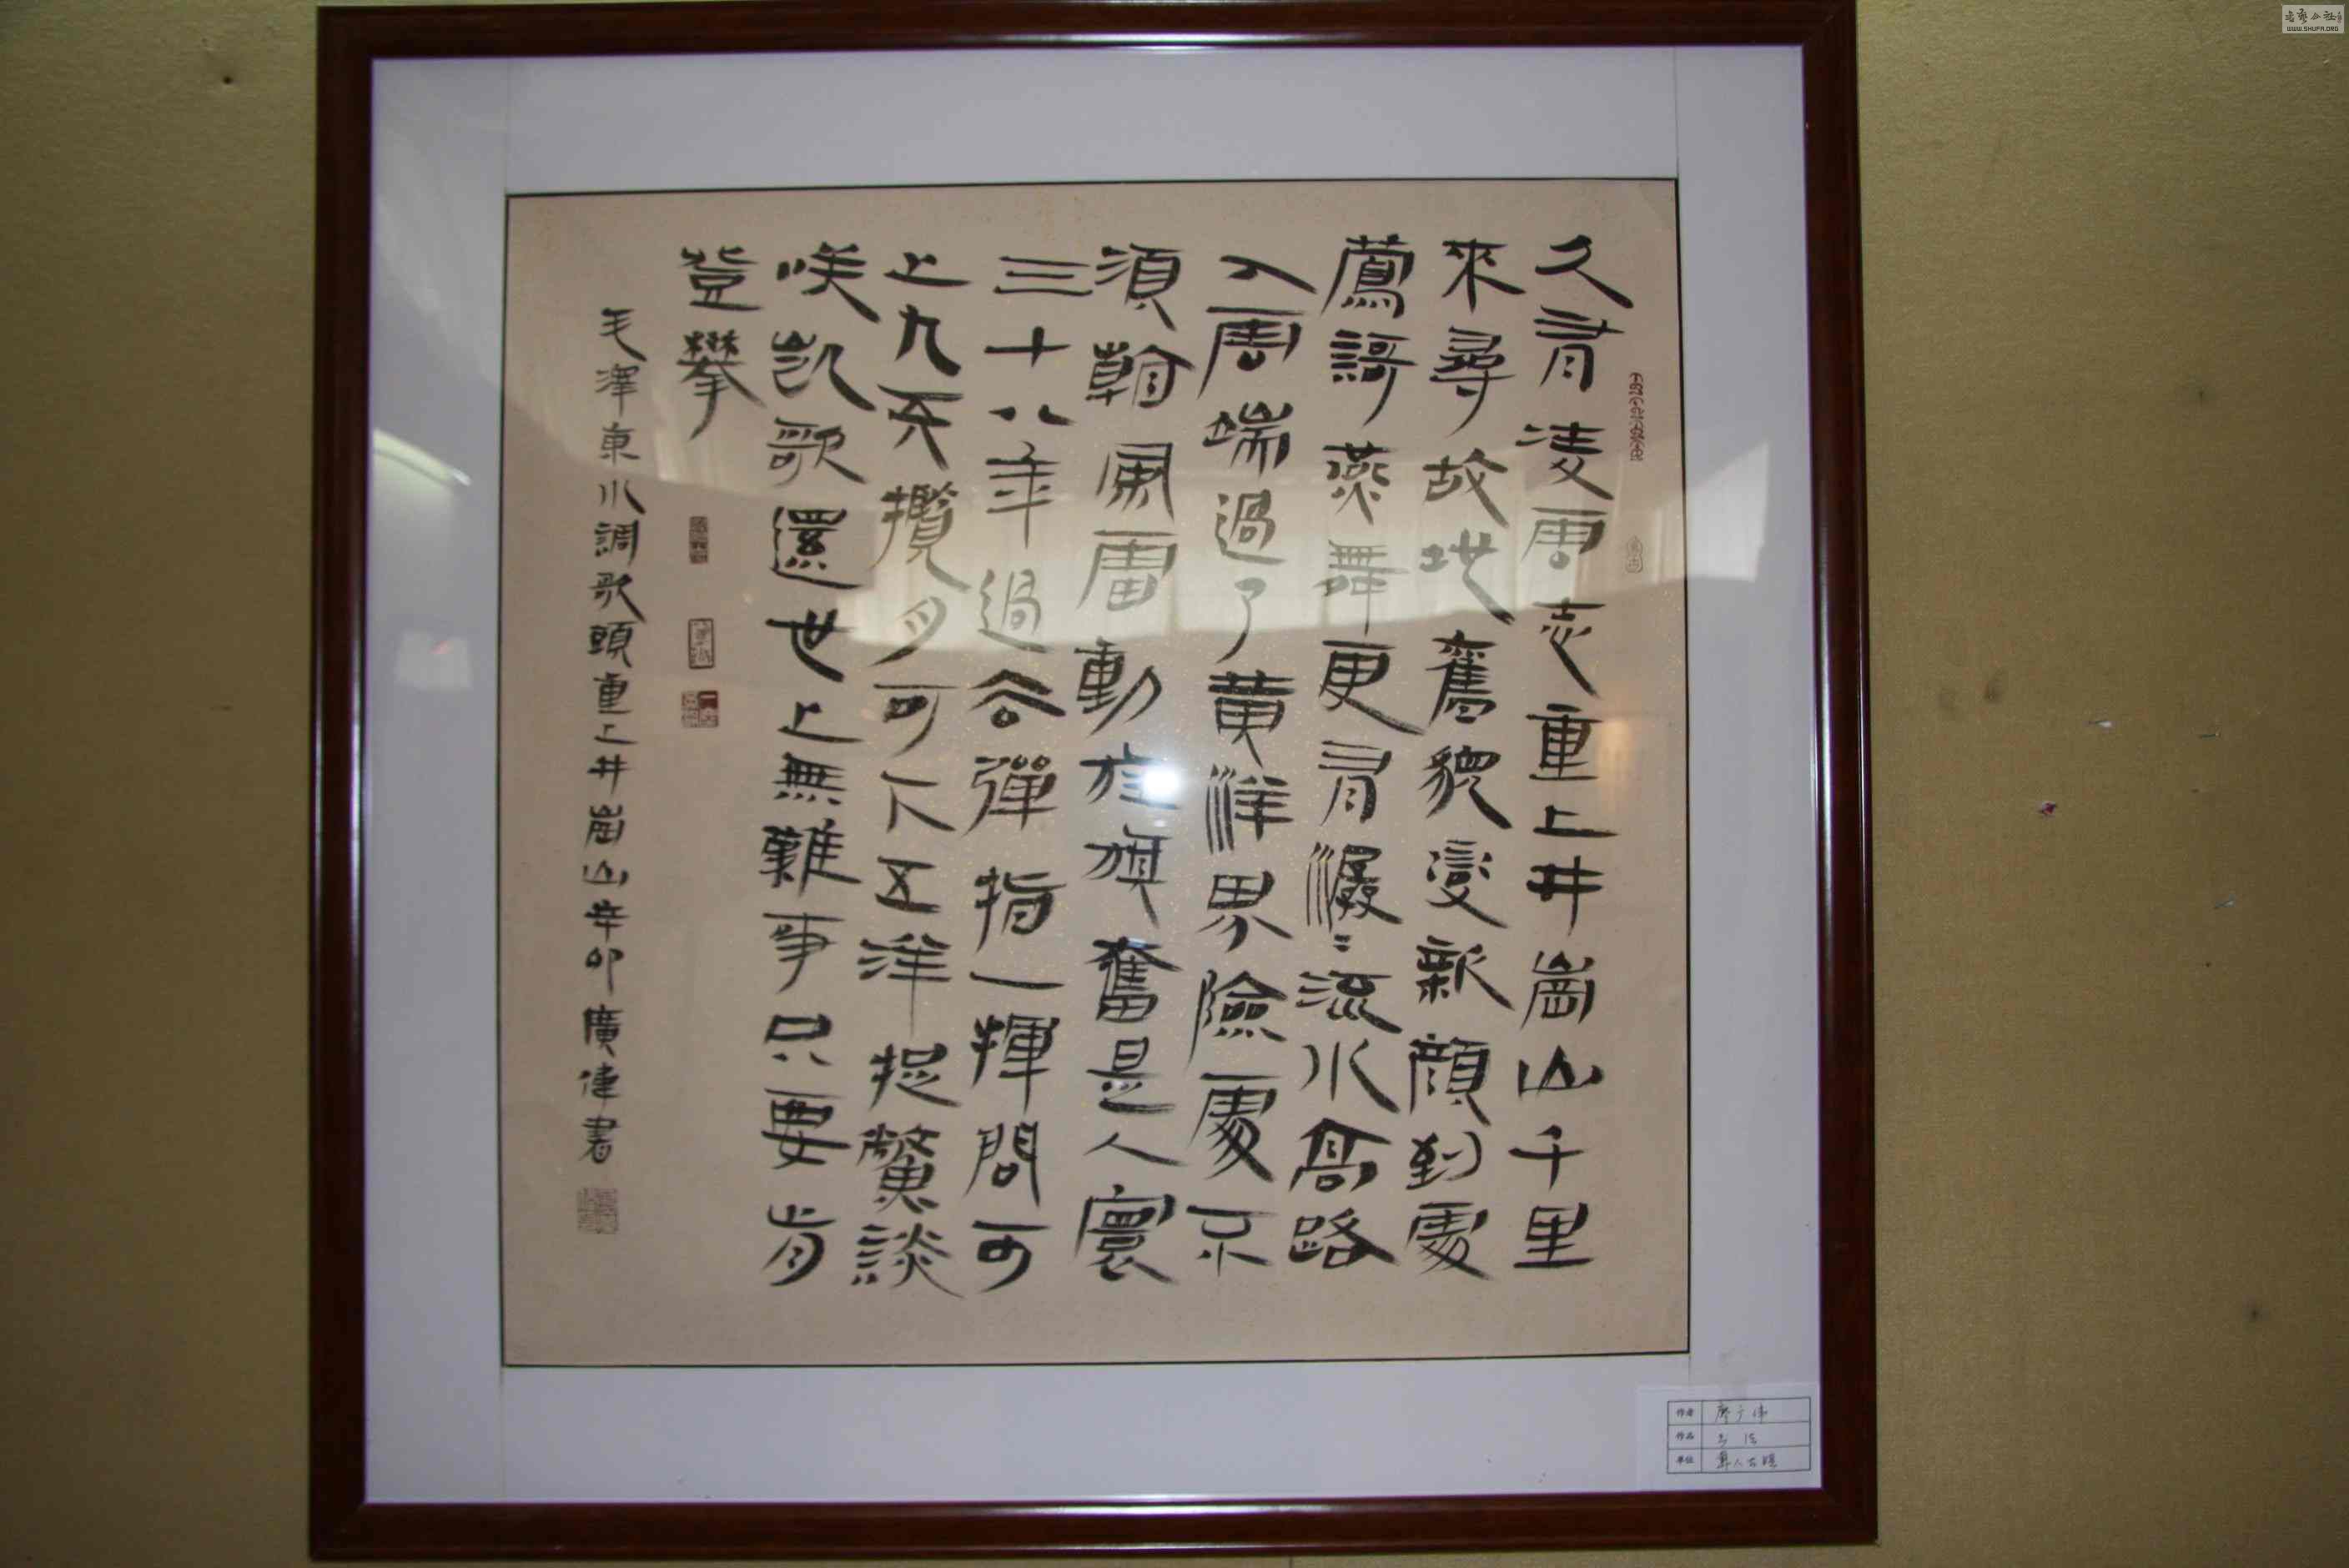 久有凌雲志重上井崗山千里
來尋故地舊貌變新顏到處
鶯謌燕舞更有潺〻流水高路
入雲端過了黃洋界險處不
須看風雷動旌旗奮是人寰
三十八年過去彈指一揮間可
上九天攬月可下五洋捉鱉談
咲凱歌還世上無難事只要肯
登攀
毛澤東水調歌頭重上井崗山辛卯廣偉書
作者 廖广伟
作品 书法
单位
WWW.SHUFA.ORG